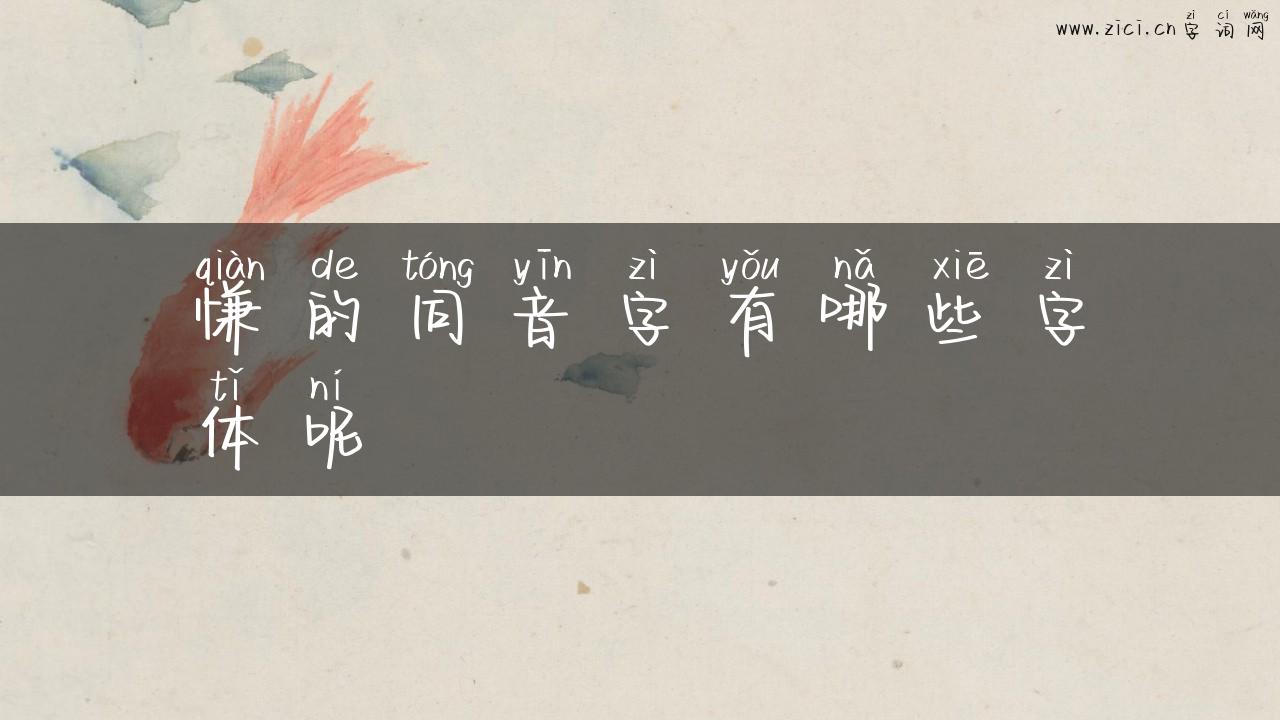 zì cí wǎng
www.zici.cn 字 词 网
qiàn de tóng yīn zì yǒu nǎ xiē zì
慊 的 同 音 字 有 哪 些 字
tǐ ní
体 呢